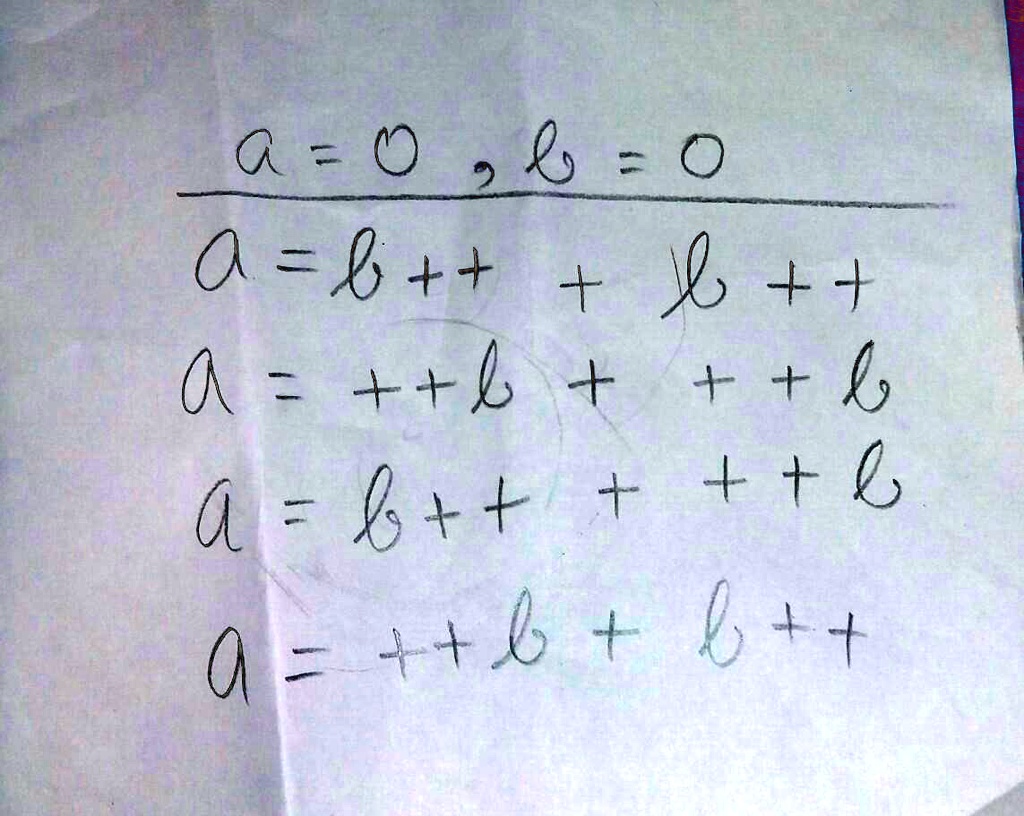 a = 0 , b = 0
a = b++ + b ++
a = ++b + ++b
a = b++ + ++b
a = ++b + b++